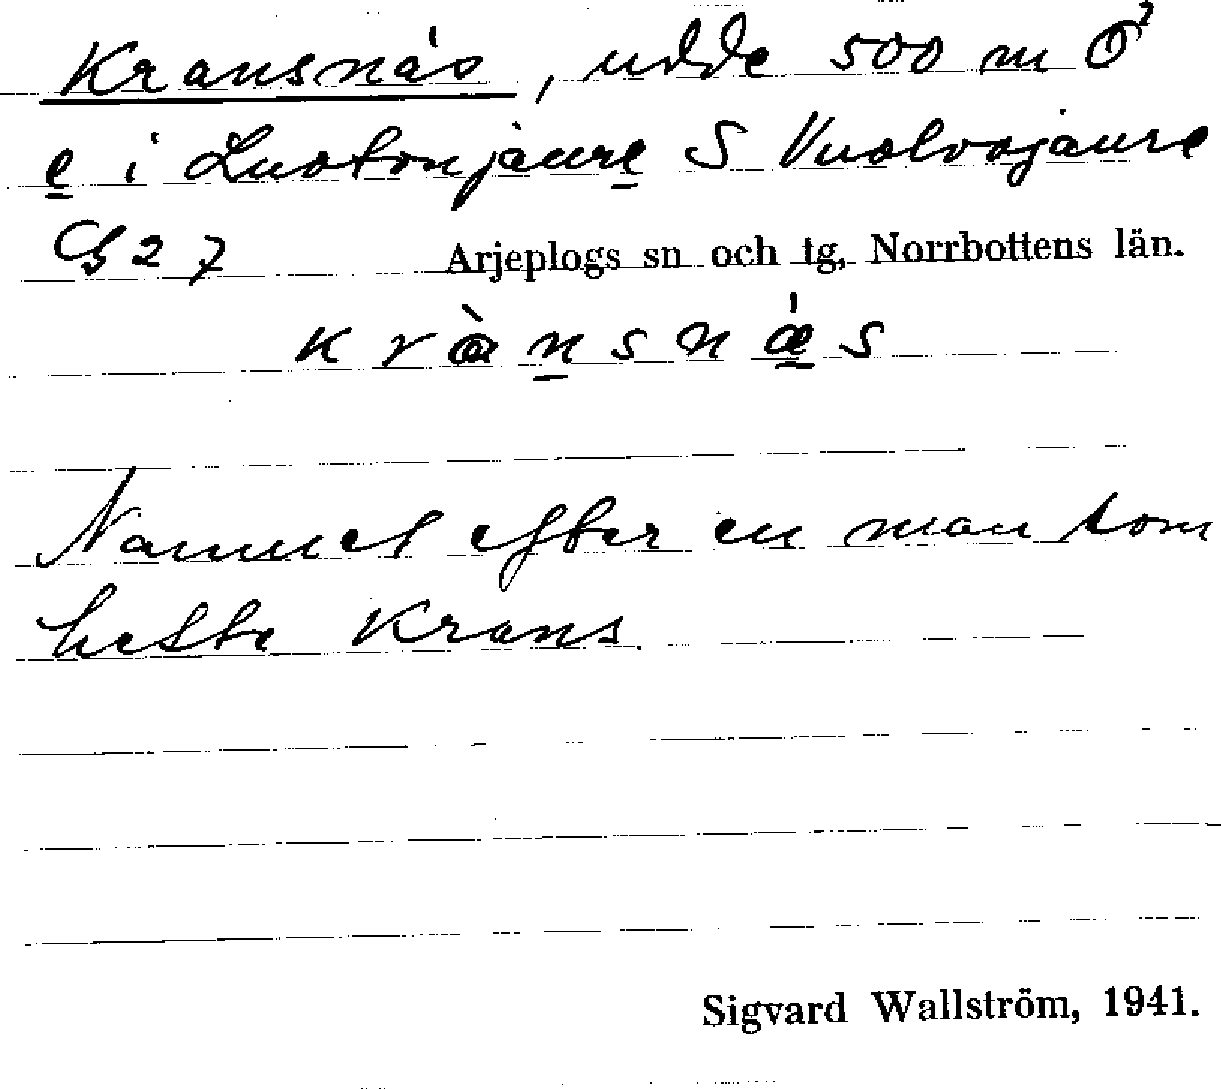 Kransnäs, udde 500 m Ö
e i Luotonjaure S Vuolvojaure
G 27 Arjeplogs sn och tg, Norrbottens län.
krànsnæ̍s
Namnet efter en man som
hette Krans.
Sigvard Wallström, 1941.